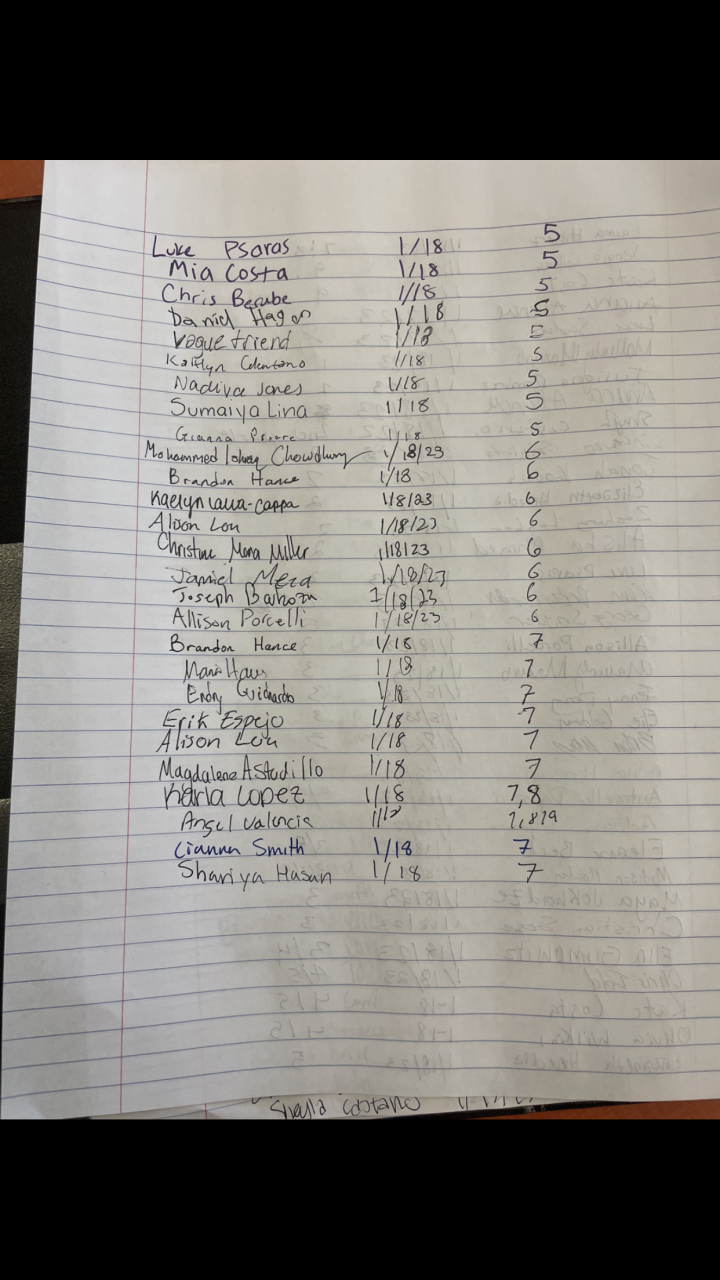 Luke Psaras 1/18 5
Mia Costa 1/18 5
Chris Berube 1/18 5
Daniel Hagon 1/18 5
Vogue friend 1/18 5
Kaitlyn 1/18 5
Nadiya Jones 1/18 5
Sumaiya Lina 1/18 5
Gianna 1/18 5
Mohammed Ishaq Chowdhury 1/18/23 6
Brandon Hance 1/18 6
Kaelyn 1/8/23 6
Alison Lou 1/18/23 6
Christine Mona Miller 1/18/23 6
Jamiel Meza 1/18/23 6
Joseph 1/18/23 6
Allison Porcelli 1/18/23 6
Brandon Hance 1/18 7
1/18 7
1/18 7
Erik Espejo 1/18 7
Alison 1/18 7
Magdalena Astudillo 1/18 7
Karla Lopez 1/18 7,8
Angel Valencia
Gianna Smith 1/18 7
Shariya Hasan 1/18 7